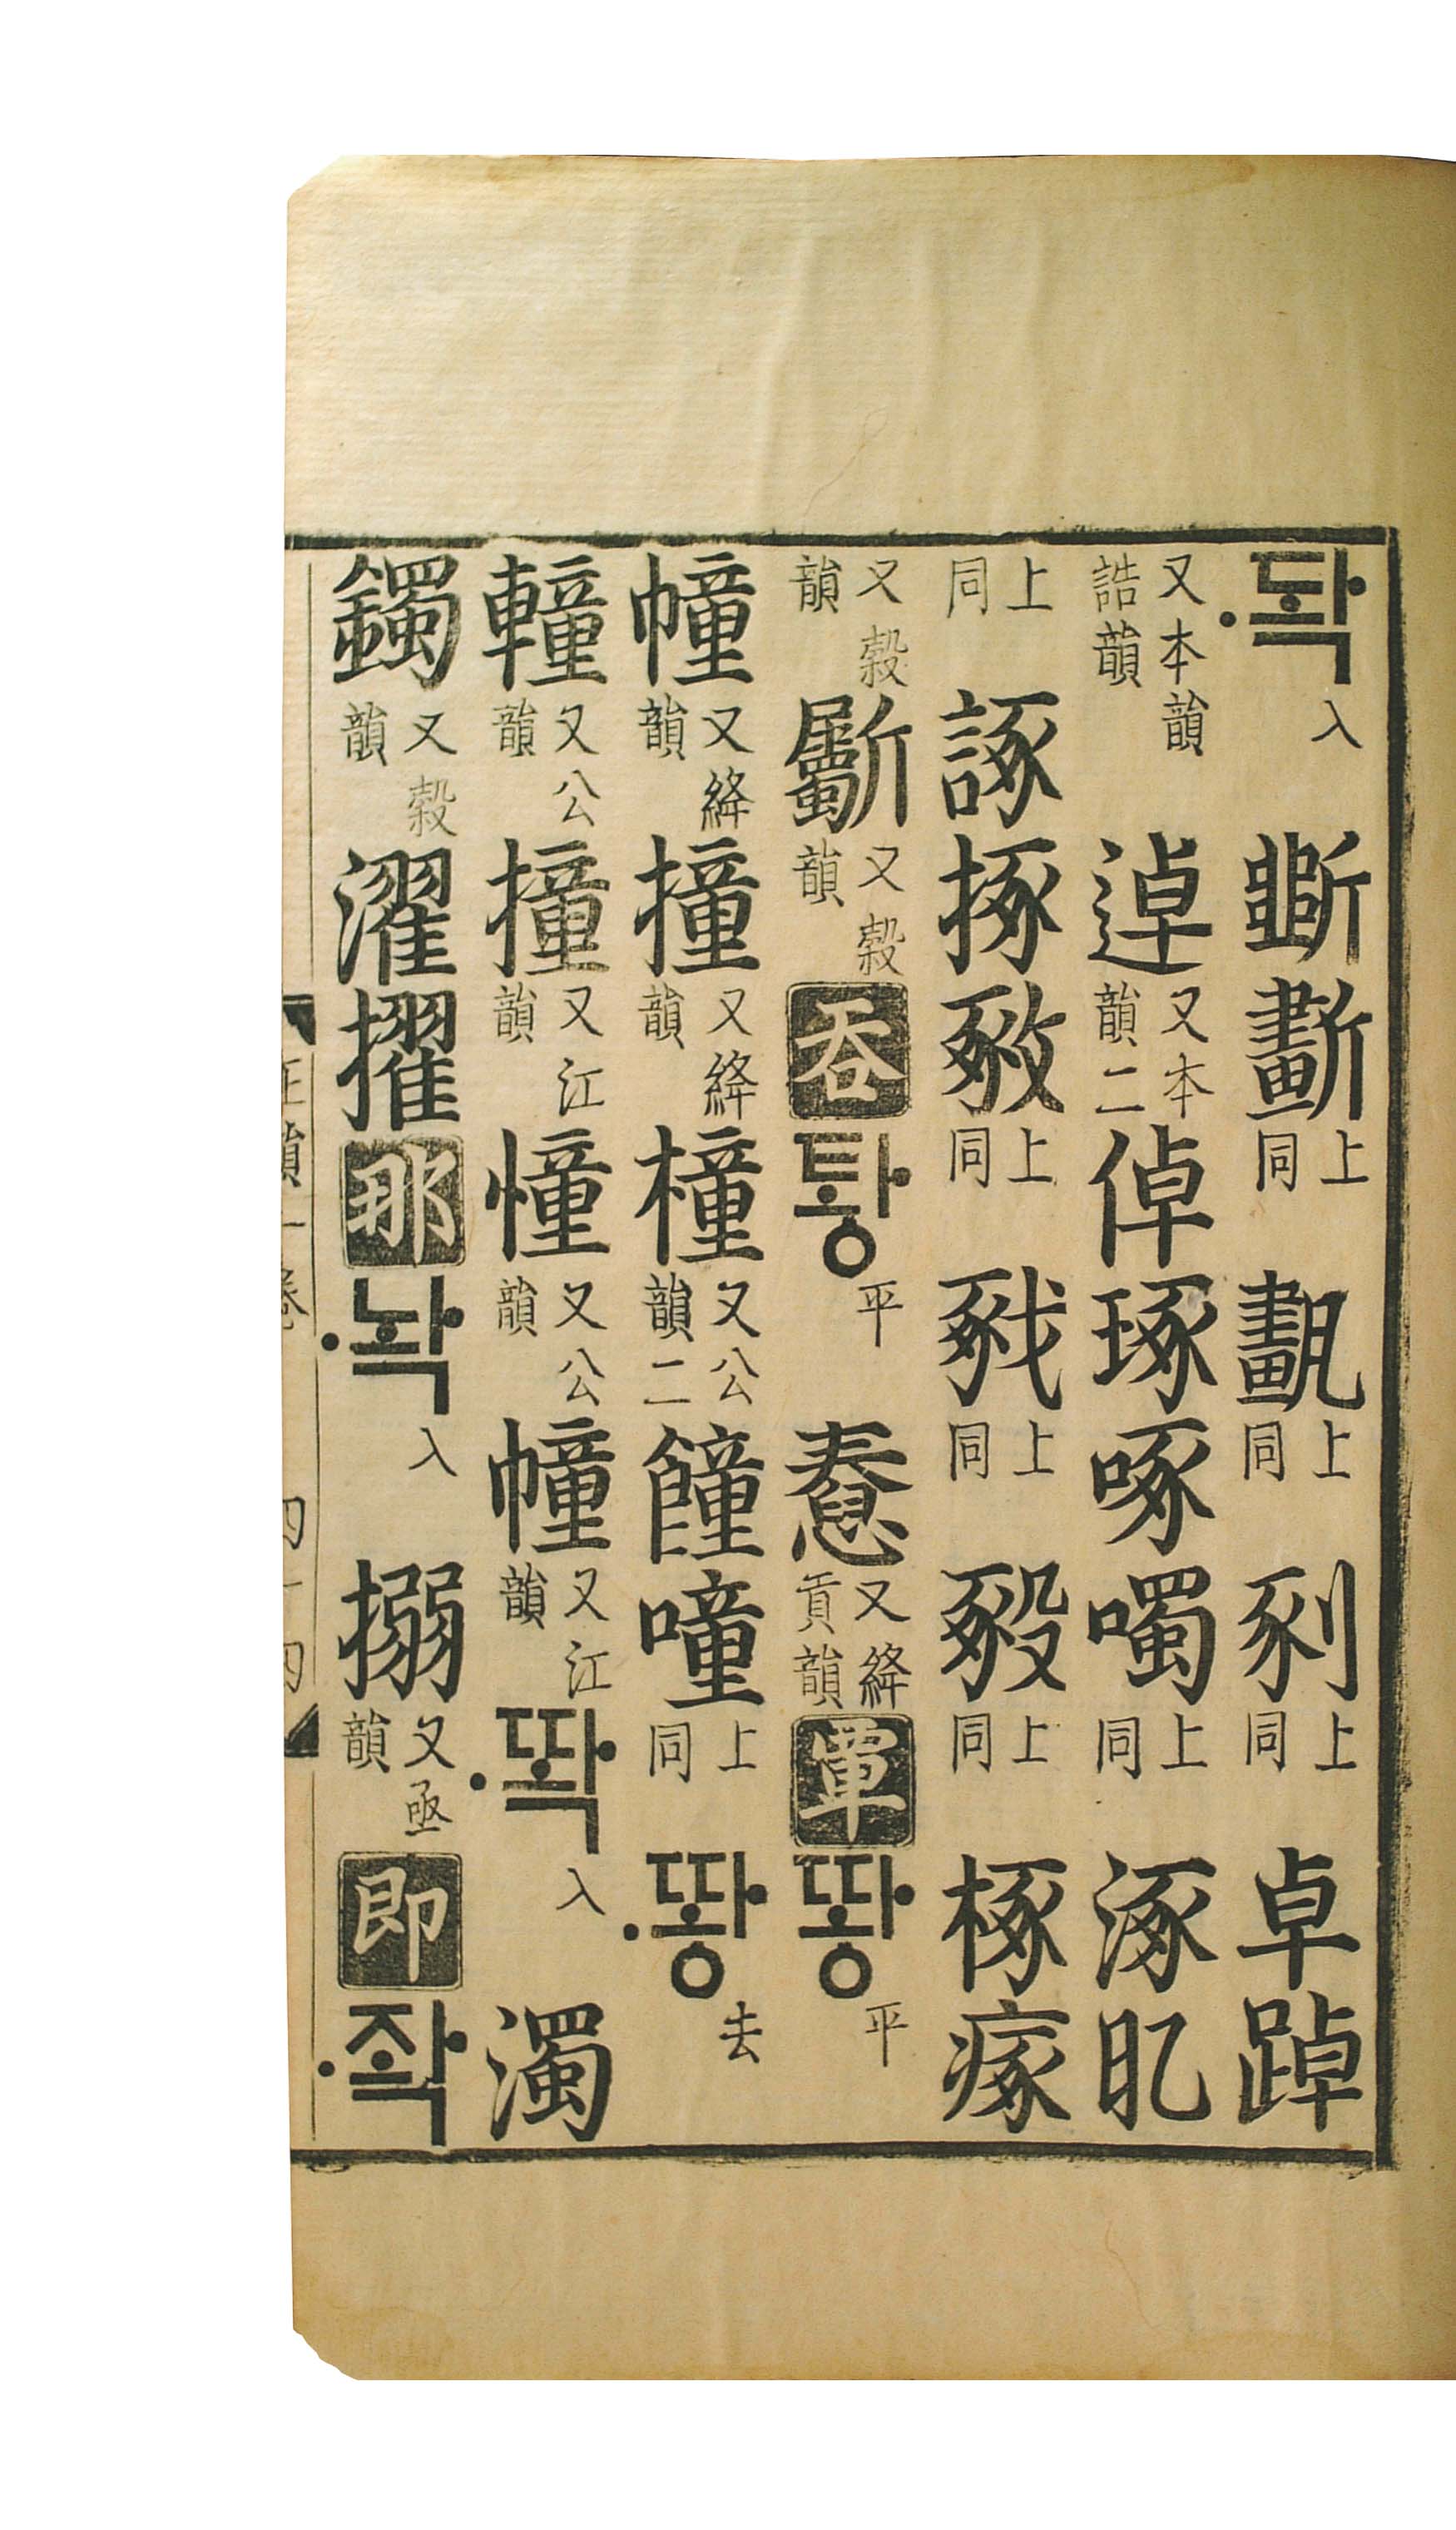 돡入斲斵上同㔉上同剢上同卓踔
又本韻誥韻逴又本韻二倬琢啄噣上同涿
上同諑㧻上同上同上同椓瘃
又穀韻斸又穀韻呑퇑平憃又絳貢韻覃뙁平
幢又絳韻撞又絳韻橦又公韻二噇上同뙁去
䡴又公韻撞又江韻憧又公韻幢又江韻똭入濁
鐲又穀韻濯擢那놕入搦又亟韻即좍